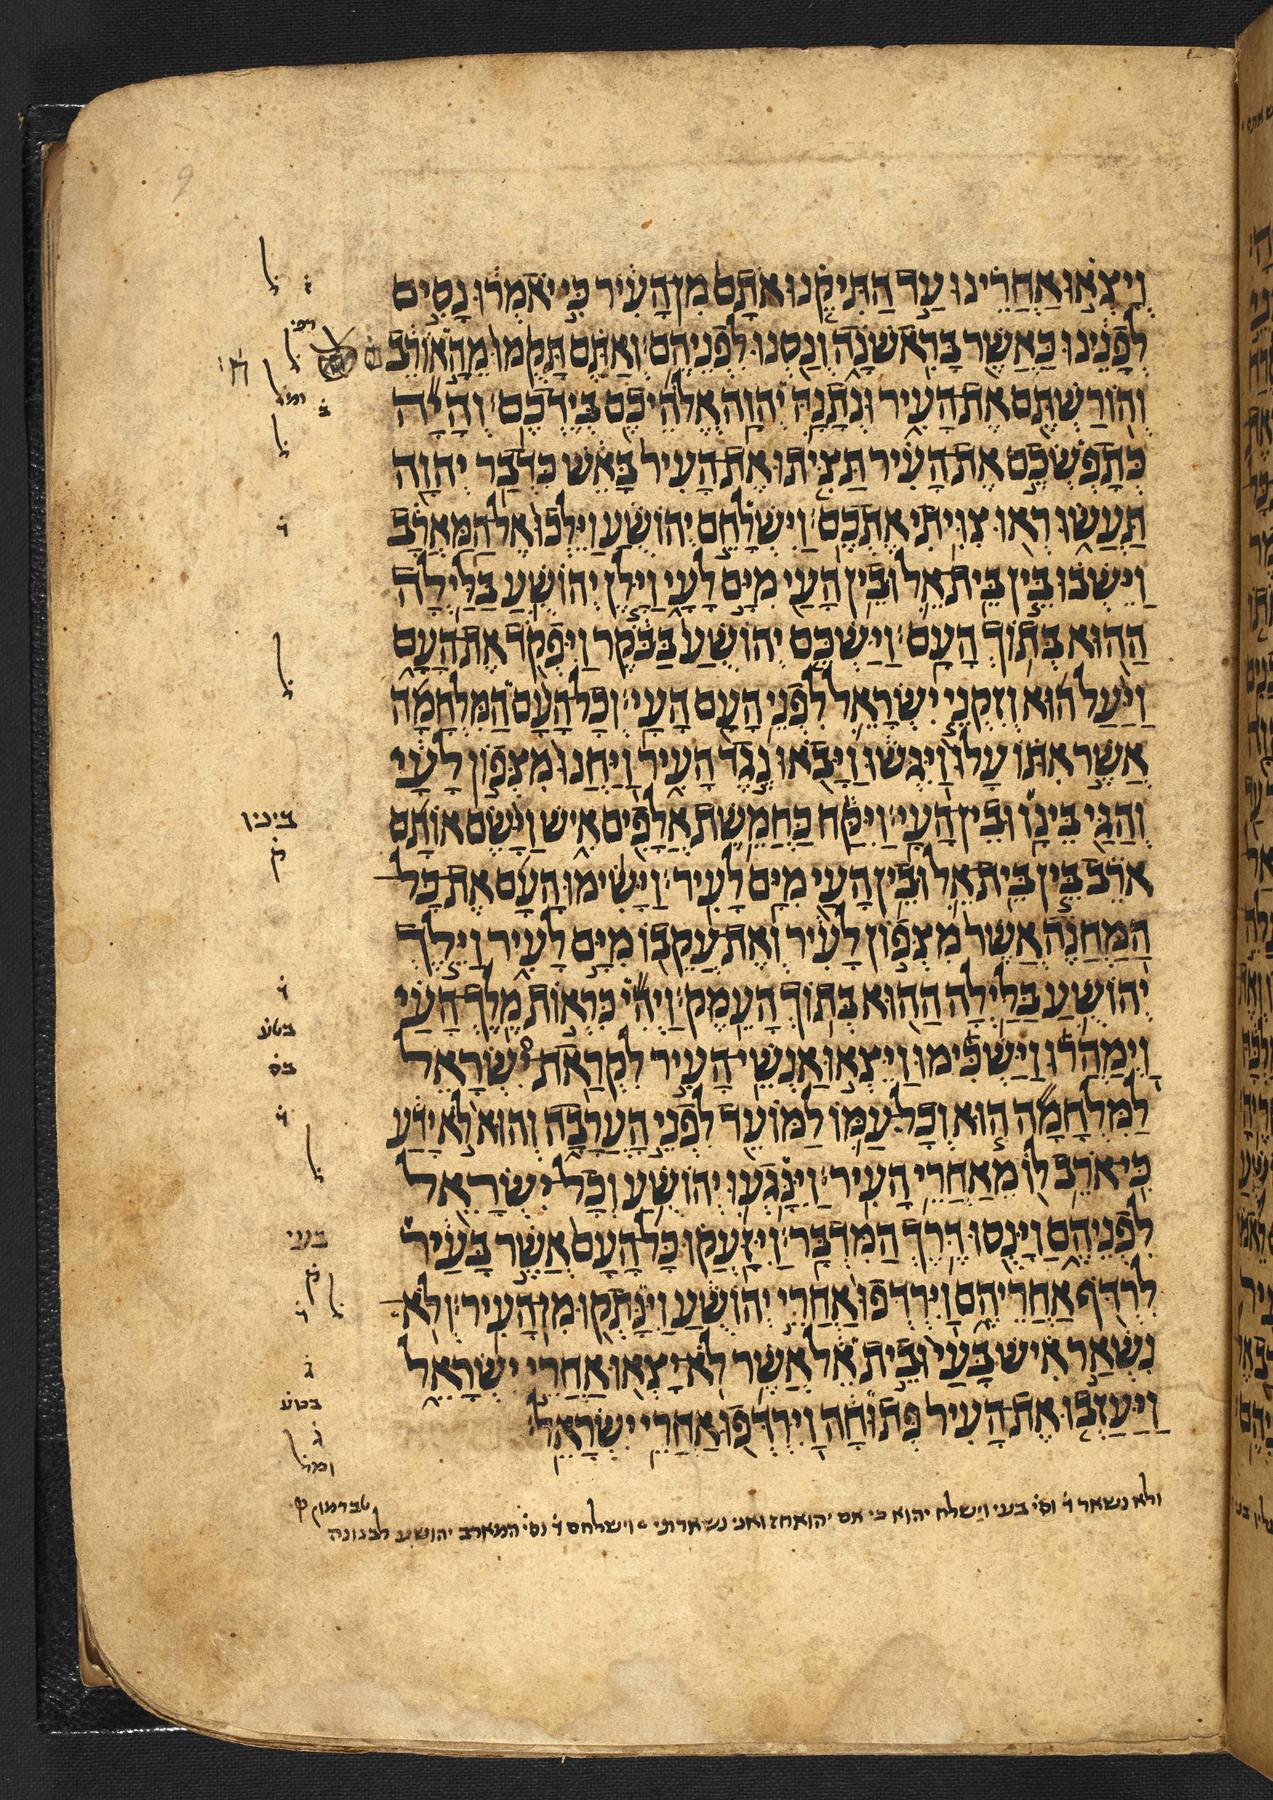 וְיָצְאוּ אַחֲרֵינוּ עַד הַתִּיקֵנוּ אֹתָם מִן הָעִיר כִּי יֹאמְרוּ נָסִים
לְפָנֵינוּ כַּאֲשֶׁר בָּרִאשֹׁנָה וְנַסְנוּ לִפְנֵיהֶם׃ וְאַתֶּם תָּקֻמוּ מֵהָאוֹרֵב
וְהוֹרַשְׁתֶּם אֶת הָעִיר וּנְתָנָהּ יְהוָה אֱלֹהֵיכֶם בְּיֶדְכֶם׃ וְהָיָה
כְּתָפְשְׂכֶם אֶת הָעִיר תַּצִּיתוּ אֶת הָעִיר בָּאֵשׁ כִּדְבַר יְהוָה
תַּעֲשׂוּ רְאוּ צִוִּיתִי אֶתְכֶם׃ וַיִּשְׁלָחֵם יְהוֹשֻׁעַ וַיֵּלְכוּ אֶל הַמַּאְרָב
וַיֵּשְׁבוּ בֵּין בֵּית אֵל וּבֵין הָעַי מִיָּם לָעָי וַיָּלֶן יְהוֹשֻׁעַ בַּלַּיְלָה
הַהוּא בְּתוֹךְ הָעָם׃ וַיַּשְׁכֵּם יְהוֹשֻׁעַ בַּבֹּקֶר וַיִּפְקֹד אֶת הָעָם
וַיַּעַל הוּא וְזִקְנֵי יִשְׂרָאֵל לִפְנֵי הָעָם הָעָי׃ וְכָל הָעָם הַמִּלְחָמָה
אֲשֶׁר אִתּוֹ עָלוּ וַיִּגְּשׁוּ וַיָּבֹאוּ נֶגֶד הָעִיר וַיַּחֲנוּ מִצְּפוֹן לָעַי
וְהַגַּי בֵּינָו וּבֵין הָעָי׃ וַיִּקַּח כַּחֲמֵשֶׁת אֲלָפִים אִישׁ וַיָּשֶׂם אוֹתָם
אֹרֵב בֵּין בֵּית אֵל וּבֵין הָעַי מִיָּם לָעִיר׃ וַיָּשִׂימוּ הָעָם אֶת כָּל
הַמַּחֲנֶה אֲשֶׁר מִצְּפוֹן לָעִיר וְאֶת עֲקֵבוֹ מִיָּם לָעִיר וַיֵּלֶךְ
יְהוֹשֻׁעַ בַּלַּיְלָה הַהוּא בְּתוֹךְ הָעֵמֶק׃ וַיְהִי כִּרְאוֹת מֶלֶךְ הָעַי
וַיְמַהֲרוּ וַיַּשְׁכִּימוּ וַיֵּצְאוּ אַנְשֵׁי הָעִיר לִקְרַאת יִשְׂרָאֵל
לַמִּלְחָמָה הוּא וְכָל עַמּוֹ לַמּוֹעֵד לִפְנֵי הָעֲרָבָה וְהוּא לֹא יָדַע
כִּי אֹרֵב לוֹ מֵאַחֲרֵי הָעִיר׃ וַיִּנָּגְעוּ יְהוֹשֻׁעַ וְכָל יִשְׂרָאֵל
לִפְנֵיהֶם וַיָּנֻסוּ דֶּרֶךְ הַמִּדְבָּר׃ וַיִּזָּעֲקוּ כָּל הָעָם אֲשֶׁר בָּעִיר
לִרְדֹּף אַחֲרֵיהֶם וַיִּרְדְּפוּ אַחֲרֵי יְהוֹשֻׁעַ וַיִּנָּתְקוּ מִן הָעִיר׃ וְלֹא
נִשְׁאַר אִישׁ בָּעַי וּבֵית אֵל אֲשֶׁר לֹא יָצְאוּ אַחֲרֵי יִשְׂרָאֵל
וַיַּעַזְבוּ אֶת הָעִיר פְּתוּחָה וַיִּרְדְּפוּ אַחֲרֵי יִשְׂרָאֵל׃
ל
ל
ומל
ב
ל
ד
ל
בינין
ק
ד
בטע
בס
ד
ל
בעי
ק
ל
ד
ג
בטע
ג
ומל
ולא נשאר ד וסי בעי וישלח יהוא כי אם יהואחז ואני נשארתי וישלחם ד וסי המארב יהושע לבנונה
טברמון
9